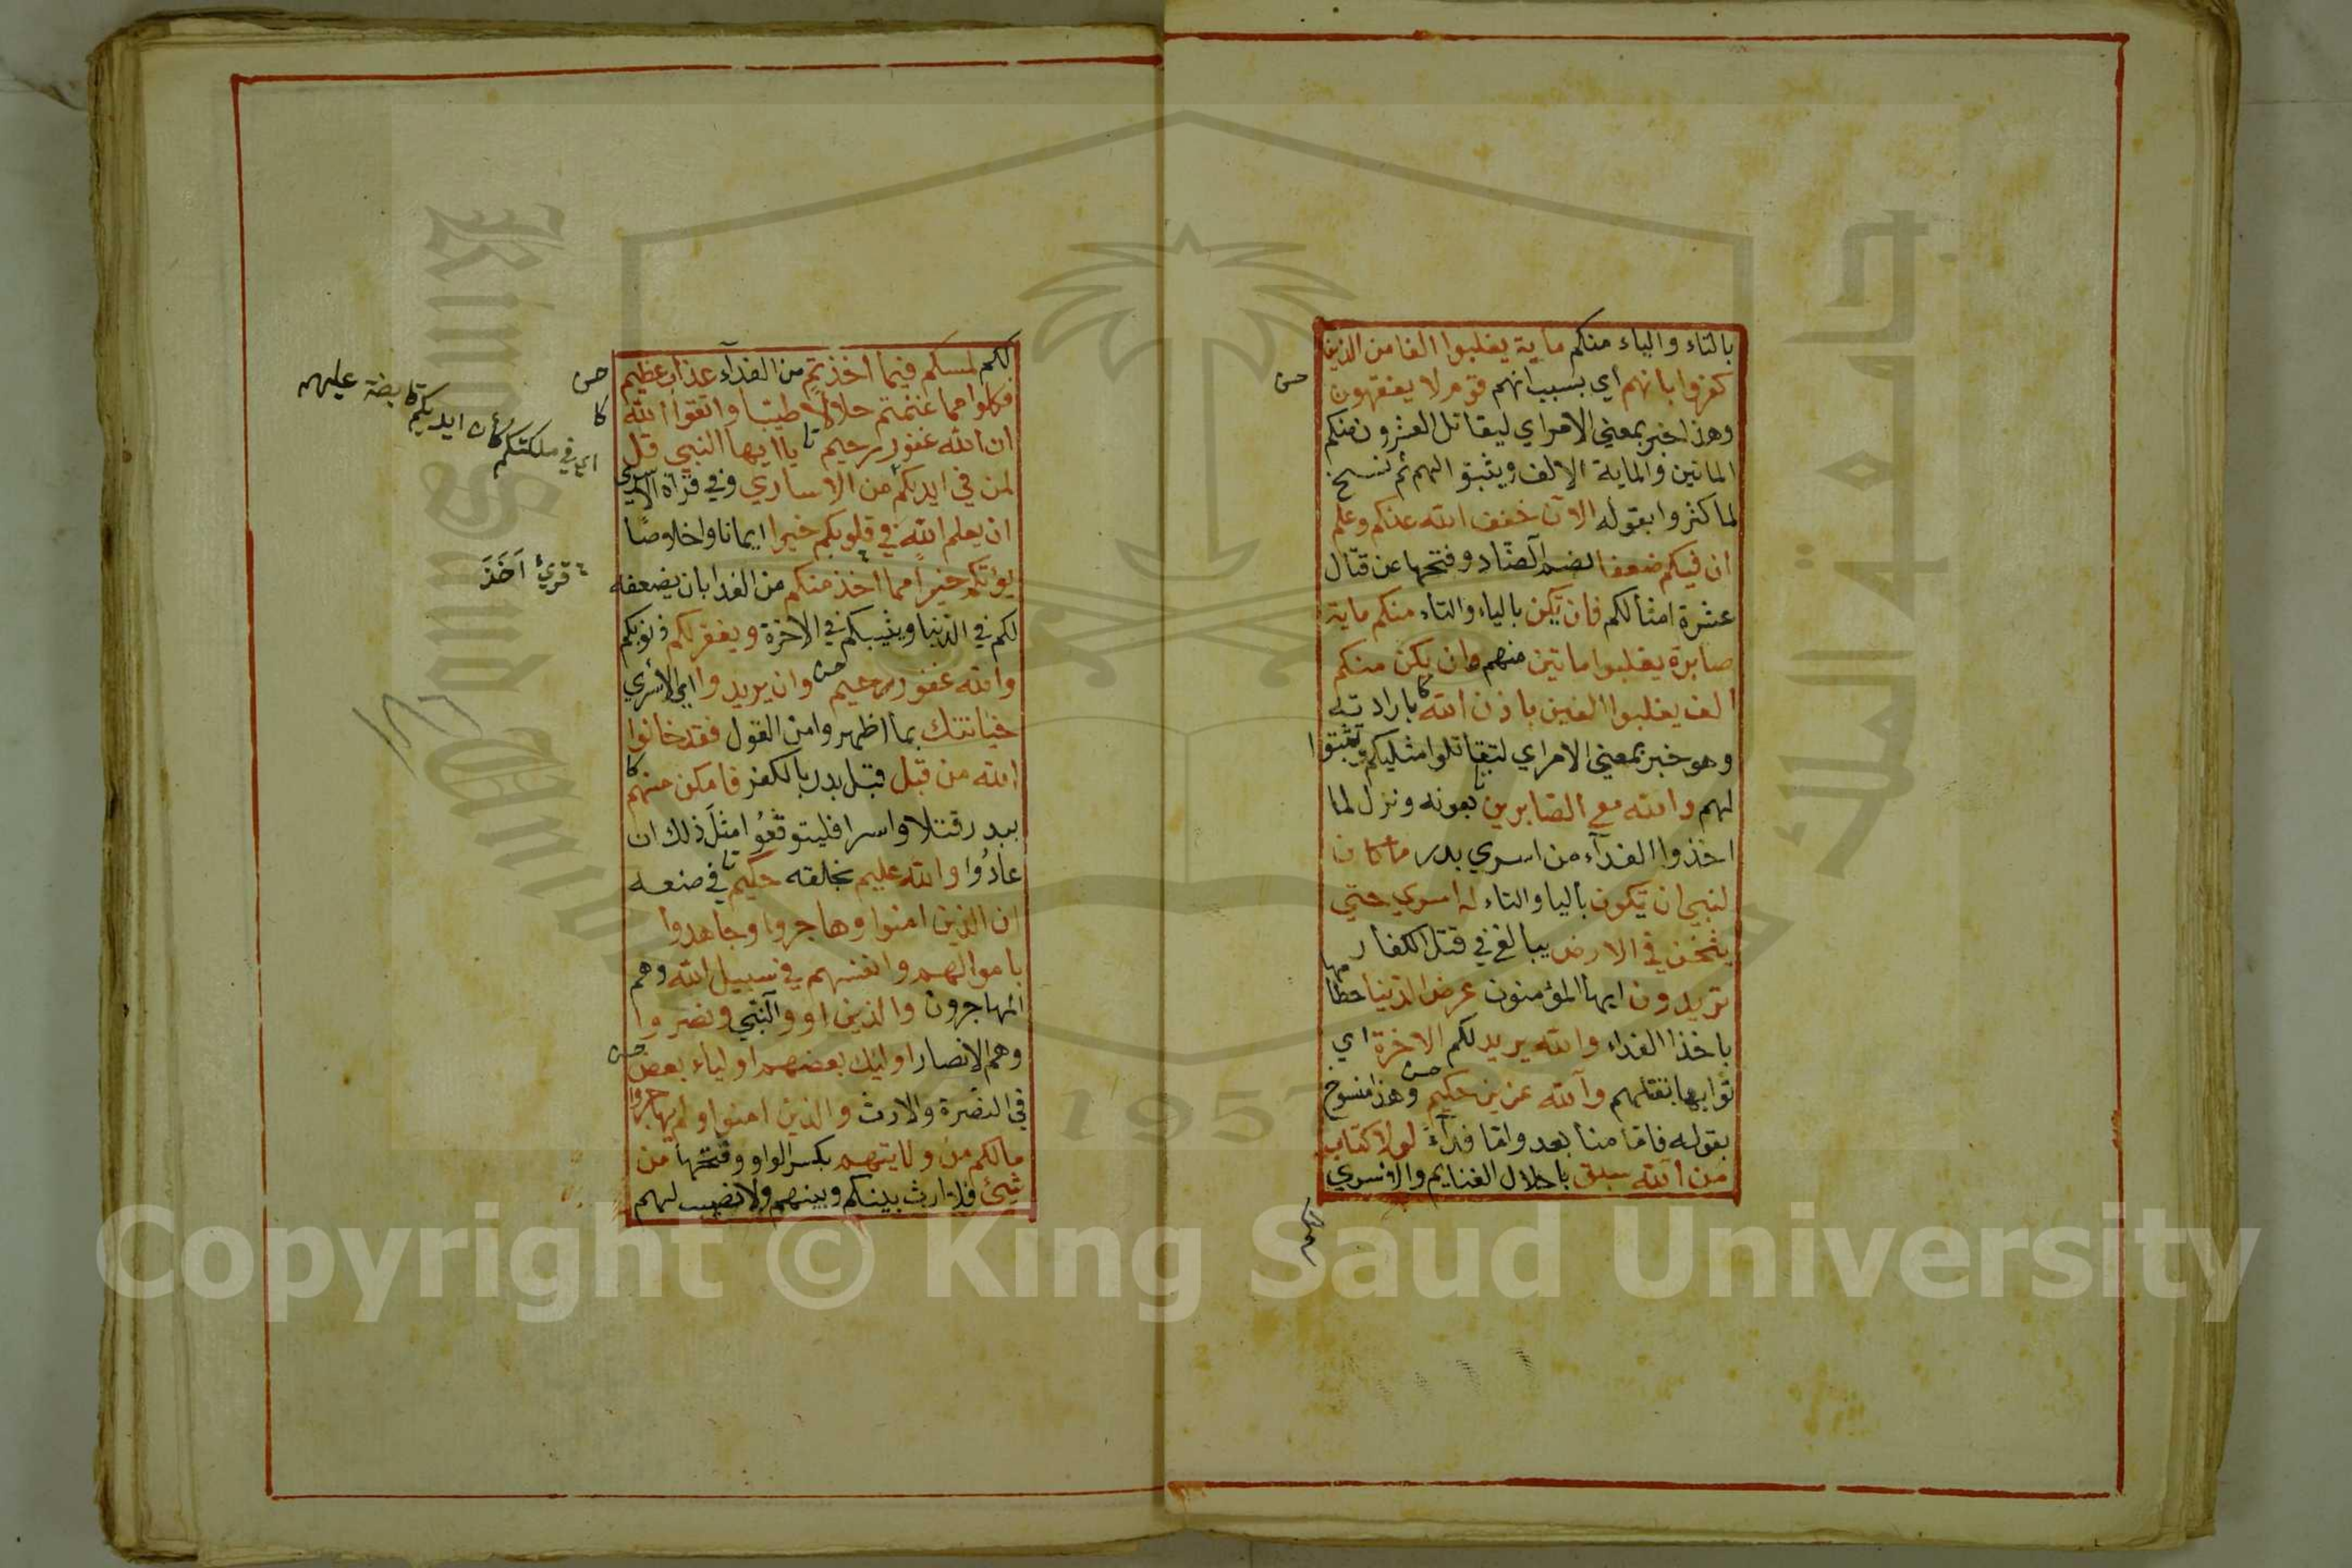 بالتاء والياء منكم ماية يغلبوا الفا من الذين
كفروا بانهم أي بسبب انهم قوم لا يفقهون
حسن
وهذا خبر بمعني الامر اي ليقاتل العشرون منكم
الماتين والماية الالف ويثبتوا لهم ثم نسخ
لما كثروا بقوله الآن خفف الله عنكم وعلم
ان فيكم ضعفا بضم الضاد وفتحها عن قتال
عشرة امثالكم فان يكن بالياء والتاء منكم ماية
صابرة يغلبوا ماتين منهم وان يكن منكم
الف يغلبوا الفين باذن الله كا بارادته
وهو خبر بمعني الامر اي لتقاتلوا مثليكم وتثبتوا
لهم والله مع الصابرين بعونه ونزل لما
اخذوا الفدآء من اسري بدر ما كان
لنبي ان يكون باليا والتاء له اسري حتي
يثخن في الارض يبالغ في قتل الكفار
تريدون ايها المؤمنون عرض الدنيا حطامها
باخذ الفداء والله يريد لكم الاخرة اي
ثوابها بقتلهم والله عزيز حكيم حسن وهذا منسوخ
بقوله فاما منا بعد واما فدآء لولا كتاب
من الله سبق باحلال الغنايم والاسري
لكم
لكم لمسكم فيما اخذتم من الفدآء عذاب عظيم
حسن
فكلوا مما غنمتم حلالا طيبا واتقوا الله
كا
ان الله غفور رحيم تا يا ايها النبي قل
لمن في ايديكم من الاساري وفي قرآة الاسري
اي في ملكتكم كأن ايديكم قابضة عليهم
ان يعلم الله في قلوبكم خيرا ايمانا واخلاصا
يؤتكم خيرا مما اخذ منكم من الفدا بان يضعفه
قرئ اَخَذَ
لكم في الدنيا ويثيبكم في الاخرة ويغفر لكم ذنوبكم
والله غفور رحيم حسن وان يريدوا اي الأسري
خيانتك بما اظهروا من القول فقد خانوا
الله من قبل قبل بدر بالكفر فامكن منهم كا
ببدر قتلا واسرا فليتوقعوا مثل ذلك ان
عادوا والله عليم بخلقه حكيم تا في صنعه
ان الذين امنوا وهاجروا وجاهدوا
باموالهم وانفسهم في سبيل الله وهم
المهاجرون والذين اووا النبي ونصروا
وهم الانصار اوليك بعضهم اولياء بعض حسن
في النصرة والارث والذين امنوا ولم يهاجروا
مالكم من ولايتهم بكسر الواو وفتحها من
شيئ فلا ارث بينكم وبينهم ولا نصيب لهم
King Saud University
1957
Copyright © King Saud University